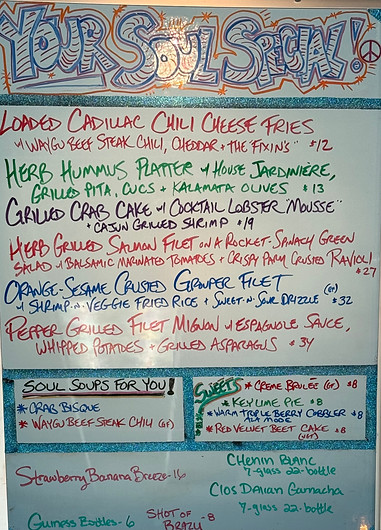 YOUR SOUL SPECIAL!
LOADED CADILLAC CHILI CHEESE FRIES
w/ WAYGU BEEF STEAK CHILI, CHEDDAR + THE FIXIN'S" $12
HERB HUMMUS PLATTER w/ HOUSE JARDINIÈRE,
GRILLED PITA, CUCS + KALAMATA OLIVES $13
GRILLED CRAB CAKE w/ COCKTAIL LOBSTER "MOUSSE"
+ CAJUN GRILLED SHRIMP $19
HERB GRILLED SALMON FILET ON A ROCKET-SPINACH GREEN
SALAD w/ BALSAMIC MARINATED TOMATOES + CRISPY PARM CRUSTED RAVIOLI
$27
ORANGE-SESAME CRUSTED GROUPER FILET (GF)
w/ SHRIMP-N-VEGGIE FRIED RICE + SWEET-N-SOUR DRIZZLE $32
PEPPER GRILLED FILET MIGNON w/ ESPAGNOLE SAUCE,
WHIPPED POTATOES + GRILLED ASPARAGUS $34
SOUL SOUPS FOR YOU!
* CRAB BISQUE
* WAYGU BEEF STEAK CHILI (GF)
SWEETS
* CREME BRULEE (GF) $8
* KEY LIME PIE $8
* WARM TRIPLE BERRY COBBLER $8
A LA MODE
* RED VELVET BEET CAKE $8
Strawberry Banana Breeze - 16
Chenin Blanc
7-glass 22-bottle
Clos Dalian Garnacha
7-glass 22-bottle
Guiness Bottles - 6
SHOT OF - 8
BRAZIL